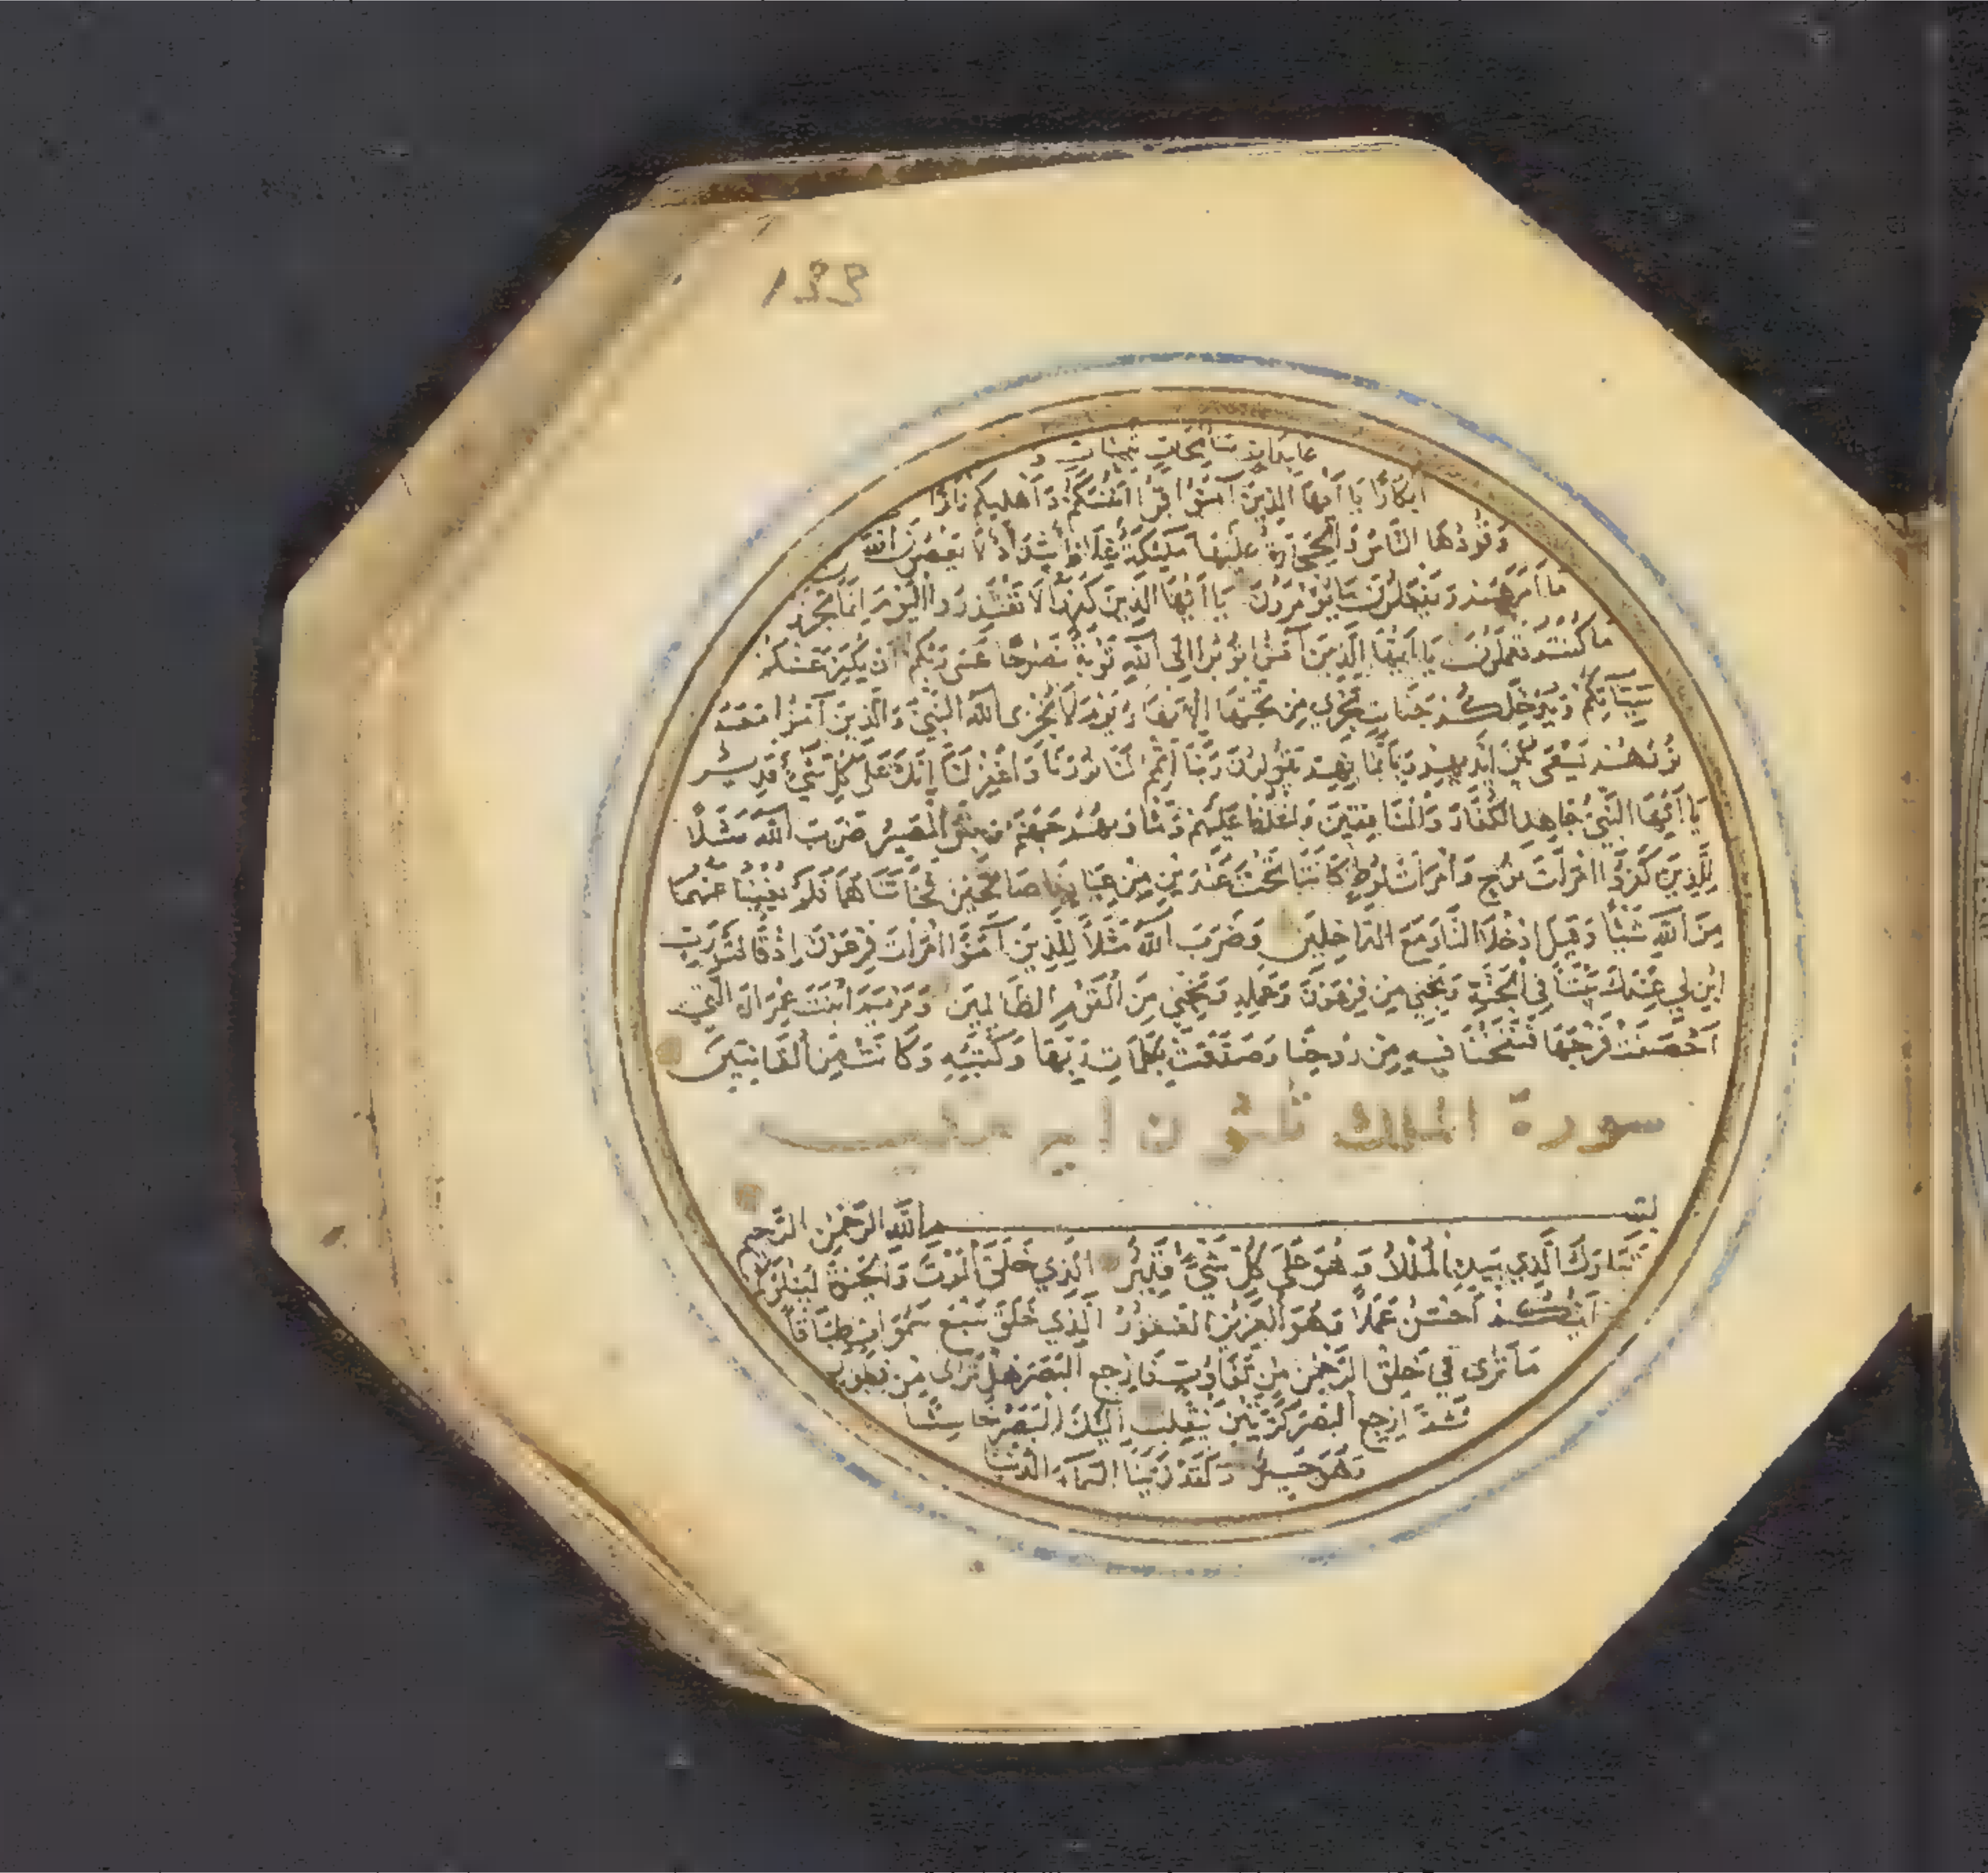 133
عابدات سائحات ثيبات و
أبكارًا يا أيها الذين آمنوا قوا أنفسكم وأهليكم نارًا
وقودها الناس والحجارة عليها ملئكة غلاظ شداد لا يعصون الله
ما أمرهم ويفعلون ما يؤمرون يا أيها الذين كفروا لا تعتذروا اليوم إنما تجزون
ما كنتم تعملون يا أيها الذين آمنوا توبوا إلى الله توبة نصوحًا عسى ربكم أن يكفر عنكم
سيئاتكم ويدخلكم جنات تجري من تحتها الأنهار يوم لا يخزى الله النبي والذين آمنوا معه
نورهم يسعى بين أيديهم وبأيمانهم يقولون ربنا أتمم لنا نورنا واغفر لنا إنك على كل شيء قدير
يا أيها النبي جاهد الكفار والمنافقين واغلظ عليهم ومأواهم جهنم وبئس المصير ضرب الله مثلًا
للذين كفروا امرأت نوح وامرأت لوط كانتا تحت عبدين من عبادنا صالحين فخانتاهما فلم يغنيا عنهما
من الله شيئًا وقيل ادخلا النار مع الداخلين وضرب الله مثلاً للذين آمنوا امرأت فرعون إذ قالت رب
ابن لي عندك بيتًا في الجنة ونجني من فرعون وعمله ونجني من القوم الظالمين ومريم ابنت عمران التي
أحصنت فرجها فنفخنا فيه من روحنا وصدقت بكلمات ربها وكتبه وكانت من القانتين
سورة الملك ثلثون آية
بسم الله الرحمن الرحيم
تبارك الذي بيده الملك وهو على كل شيء قدير الذي خلق الموت والحيوة ليبلوكم
أيكم أحسن عملًا وهو العزيز الغفور الذي خلق سبع سموات طباقًا
ما ترى في خلق الرحمن من تفاوت فارجع البصر هل ترى من فطور
ثم ارجع البصر كرتين ينقلب إليك البصر خاسئًا
وهو حسير ولقد زينا السماء الدنيا